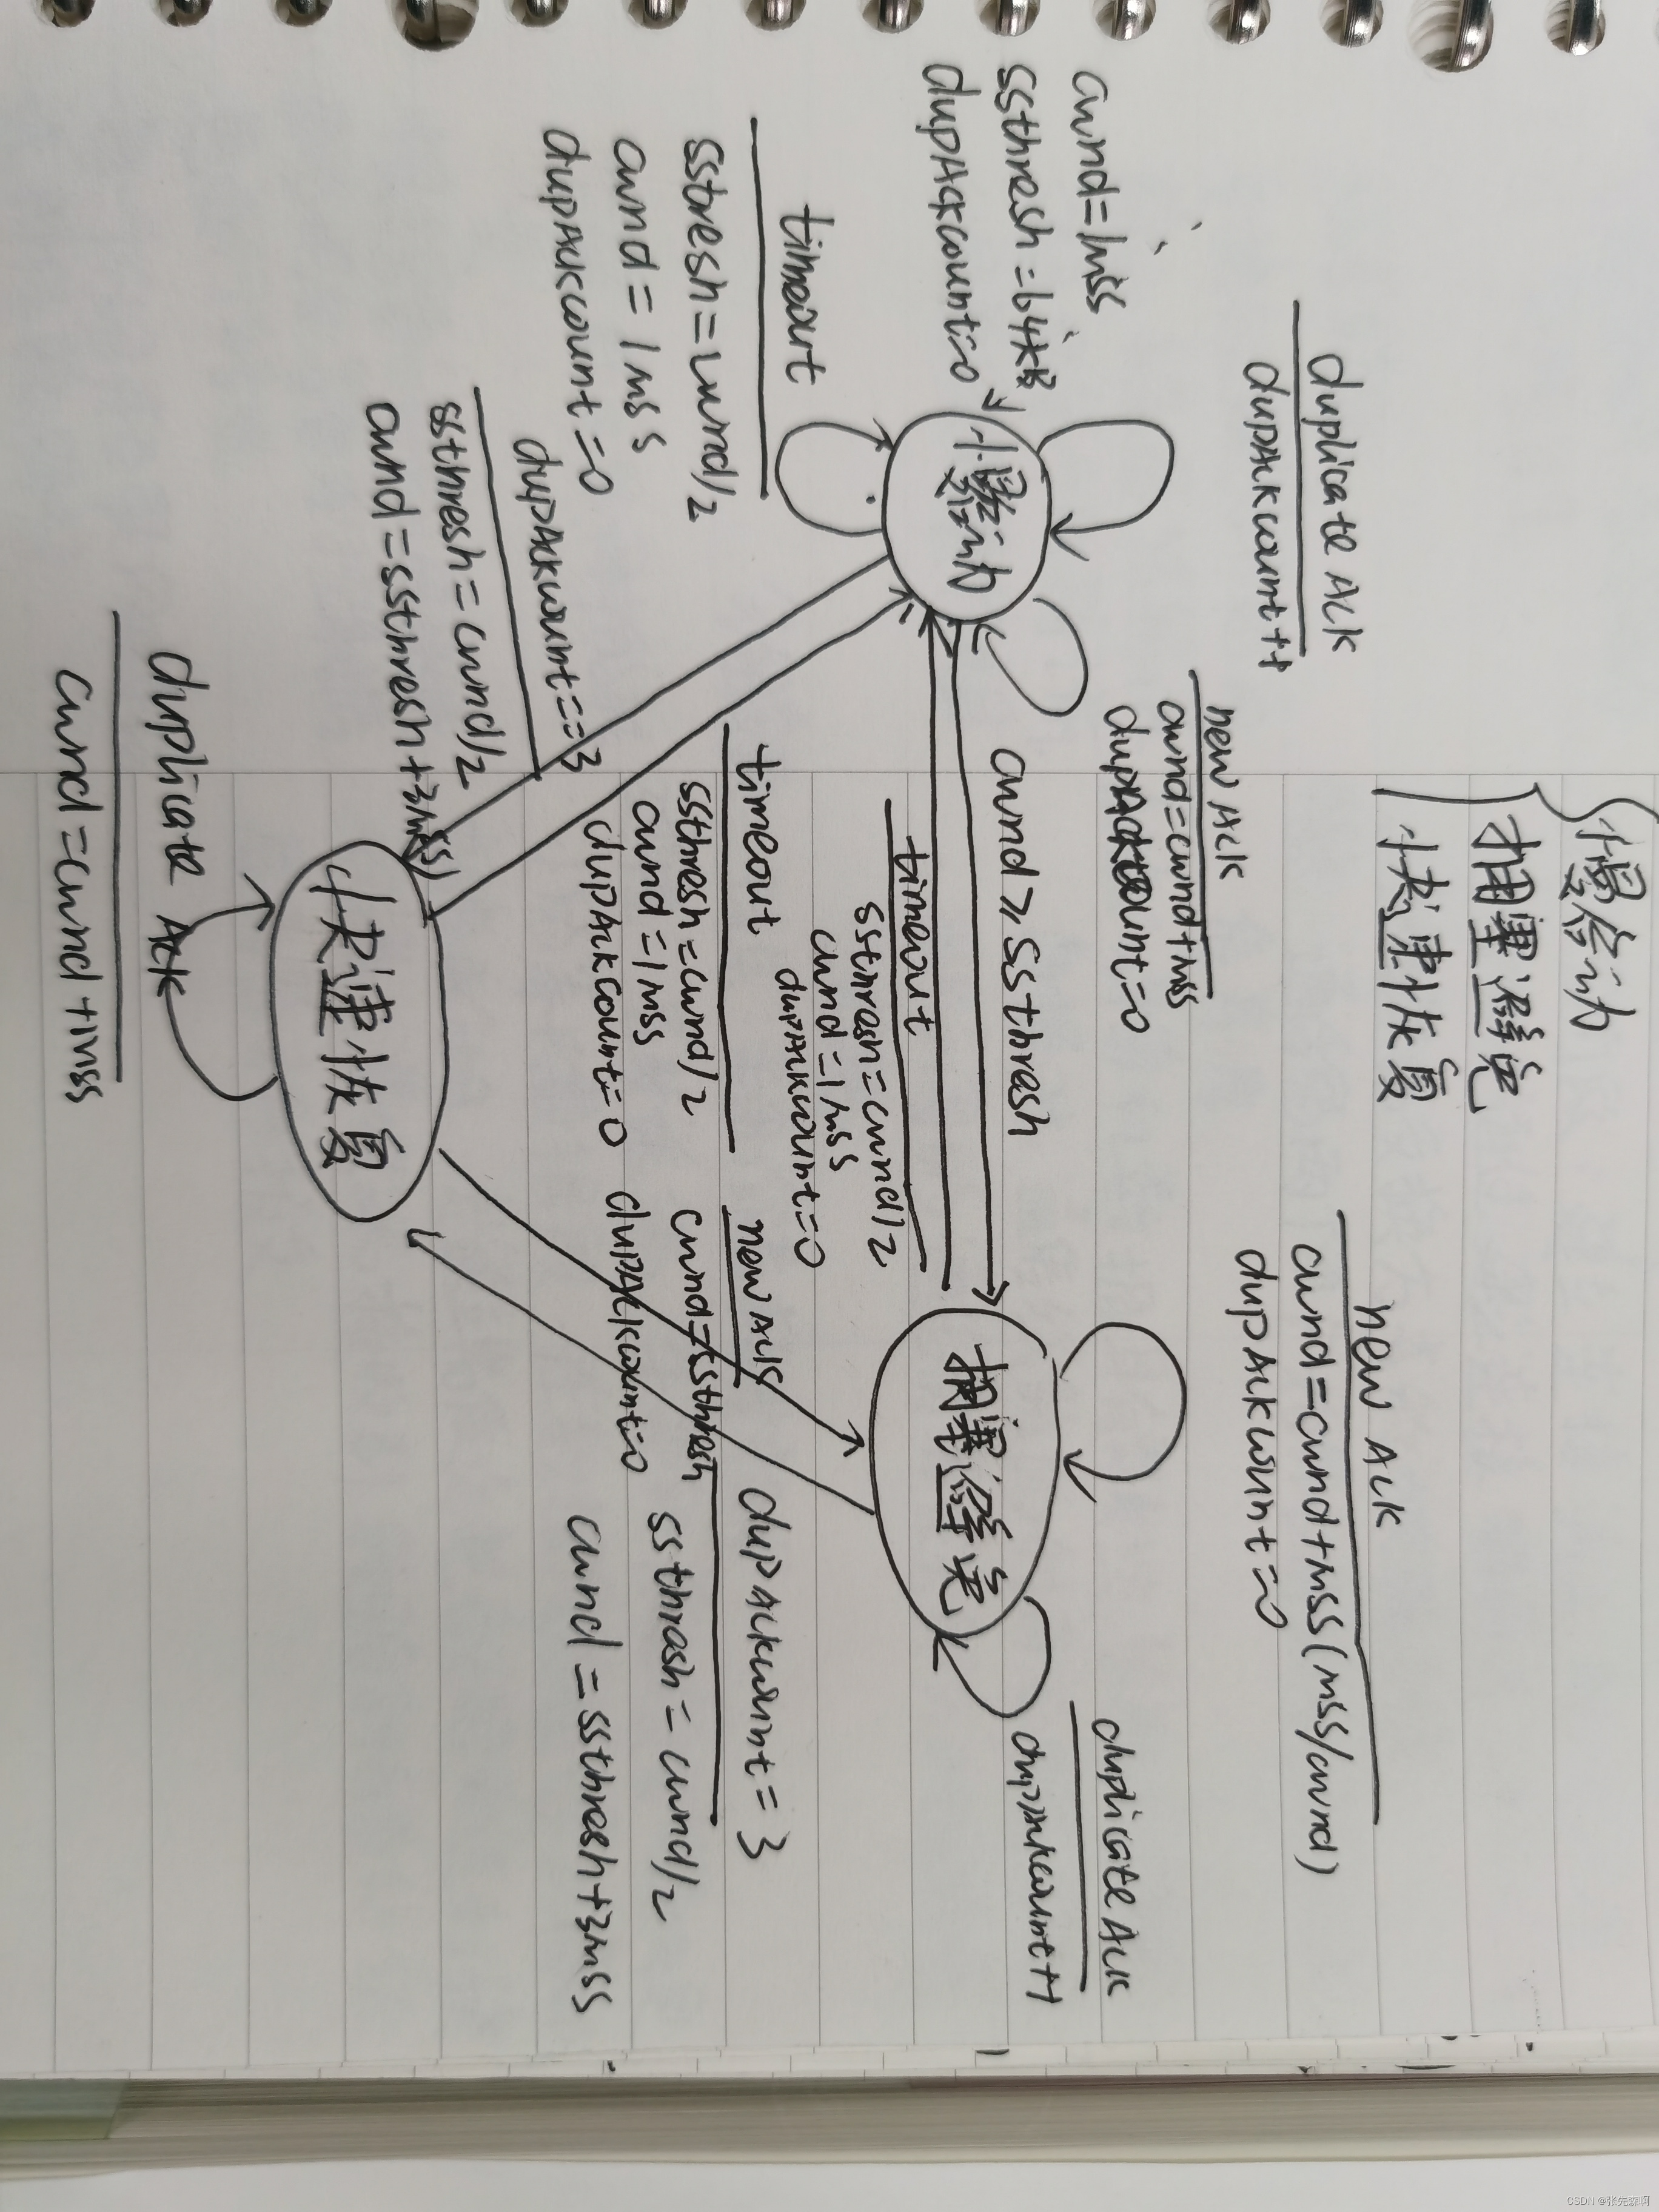 慢启动
拥塞避免
快速恢复
duplicate ACK
dupACKcount++
new ACK
cwnd=cwnd+mss
dupACKcount=0
new ACK
cwnd=cwnd+mss(mss/cwnd)
dupACKcount=0
cwnd=1mss
ssthresh=64KB
dupACKcount=0
慢启动
cwnd≥ssthresh
拥塞避免
duplicate ACK
dupACKcount++
timeout
sstresh=cwnd/2
cwnd=1mss
dupACKcount=0
timeout
ssthresh=cwnd/2
cwnd=1mss
dupACKcount=0
timeout
ssthresh=cwnd/2
cwnd=1mss
dupACKcount=0
new ACK
cwnd=ssthresh
dupACKcount=0
dupACKcount=3
ssthrash=cwnd/2
cwnd=ssthresh+3mss
dupACKcount==3
ssthresh=cwnd/2
cwnd=ssthresh+3mss
快速恢复
duplicate ACK
cwnd=cwnd+1mss
CSDN @张先森啊